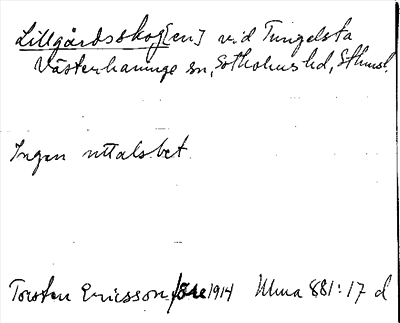 Lillgårdsskog[en] vid Tungelsta
Västerhaninge sn, Sotholms hd, Sthmsl.
Ingen uttalsbet.
Torsten Ericsson före 1914 Ulma 881:17 d